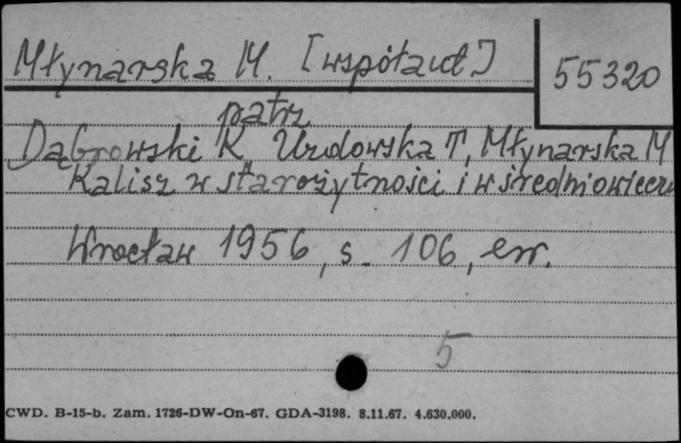 Młynarska M. [współaut.]
55320
patrz
Dąbrowski K, Uzdowska T, Młynarska M
Kalisz w starożytności i w średniowieczu
Wrocław 1956, s. 106, err.
5
CWD. B-15-b. Zam. 1726-DW-On-67. GDA-3198. 8.11.67. 4.630.000.